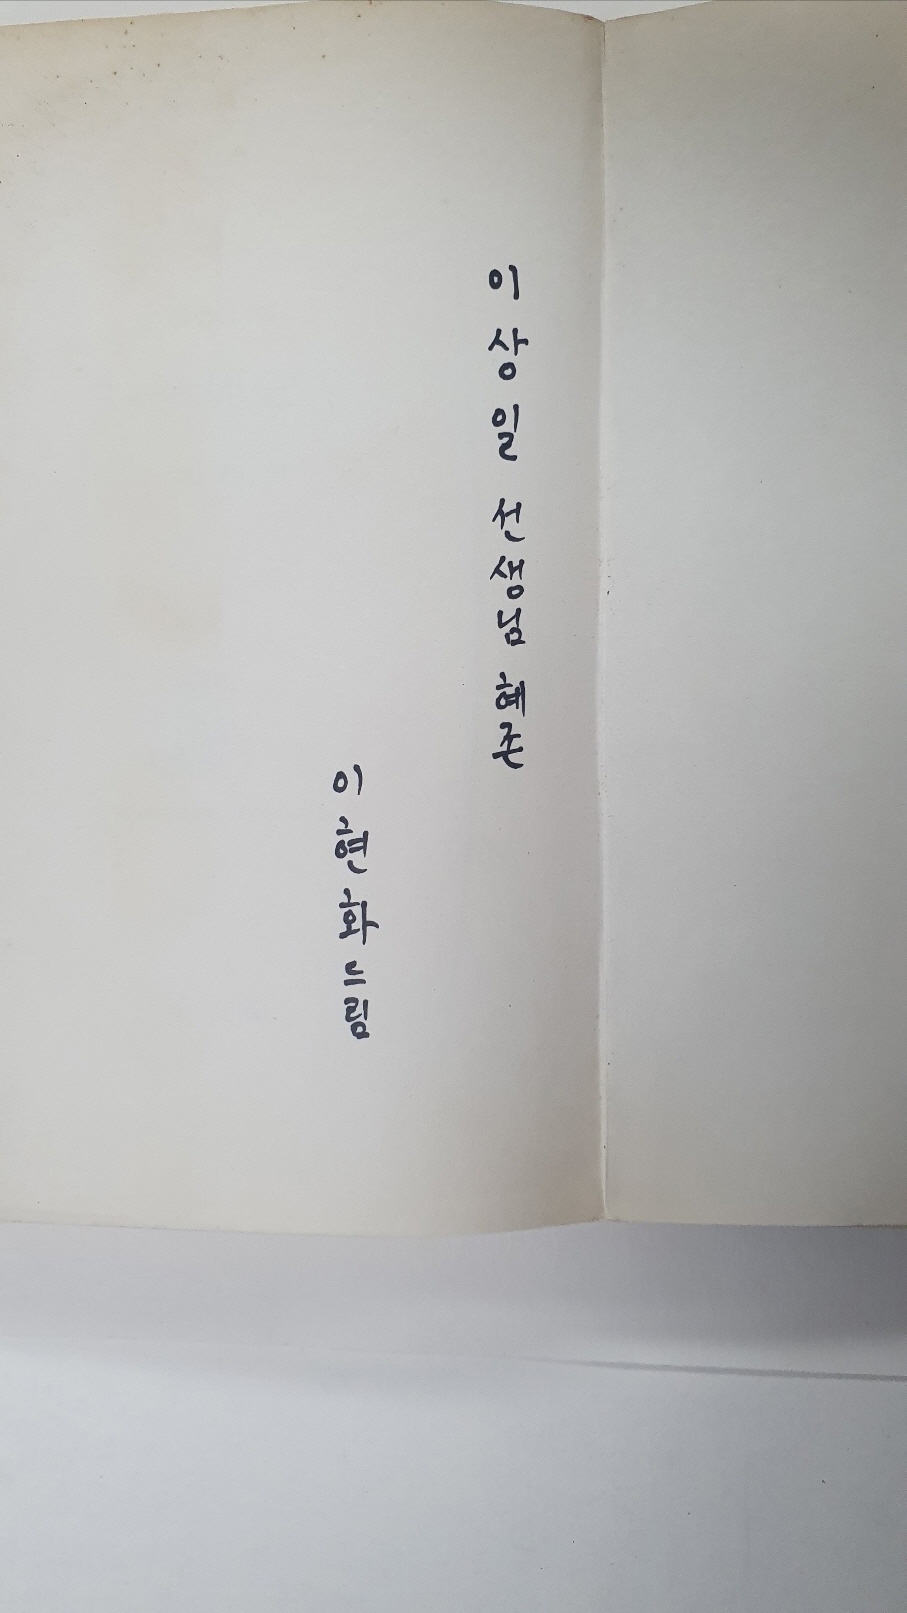 이상일 선생님 혜존
이현화 드림